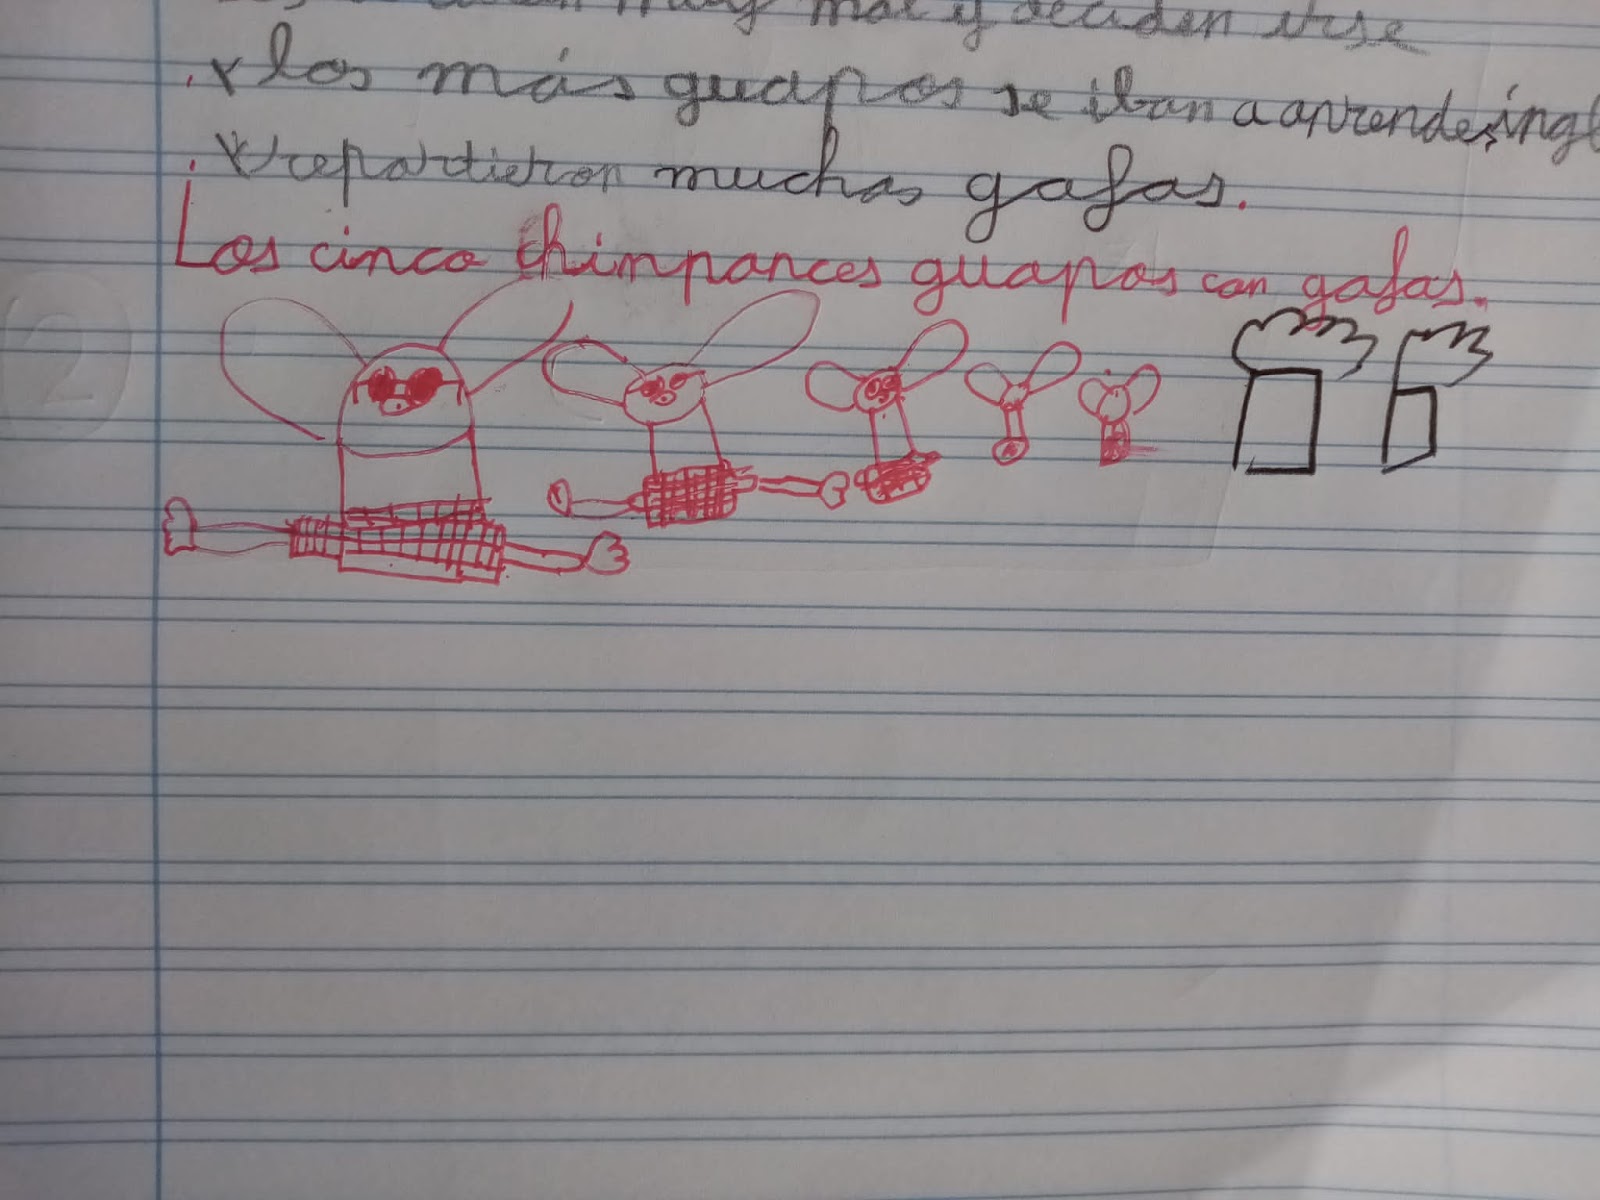 muy mal y deciden irse
x los más guapos se iban a aprender ingl
x repartieron muchas gafas.
Los cinco chimpances guapos con gafas.
2